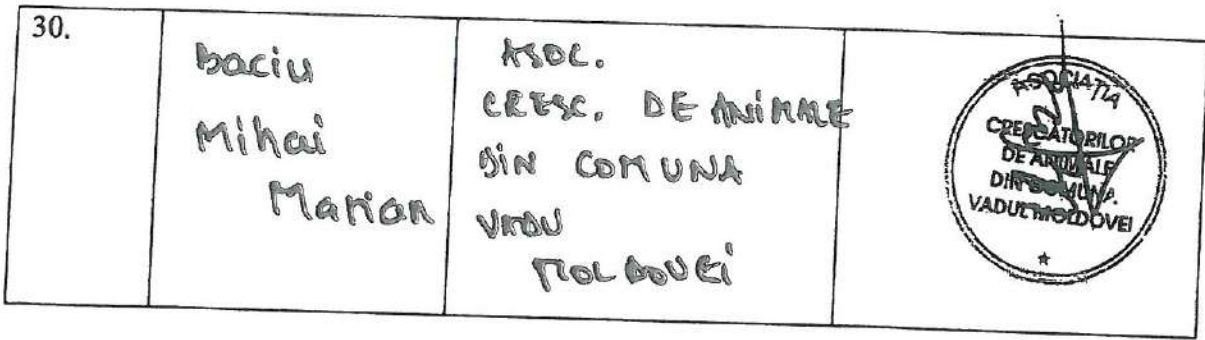 30.
Baciu
Mihai
Marian
ASOC.
CRESC. DE ANIMALE
DIN COMUNA
VADU
MOLDOVEI
ASOCIAȚIA
CRESCATORILOR
DE ANIMALE
DIN COMUNA
VADUL MOLDOVEI